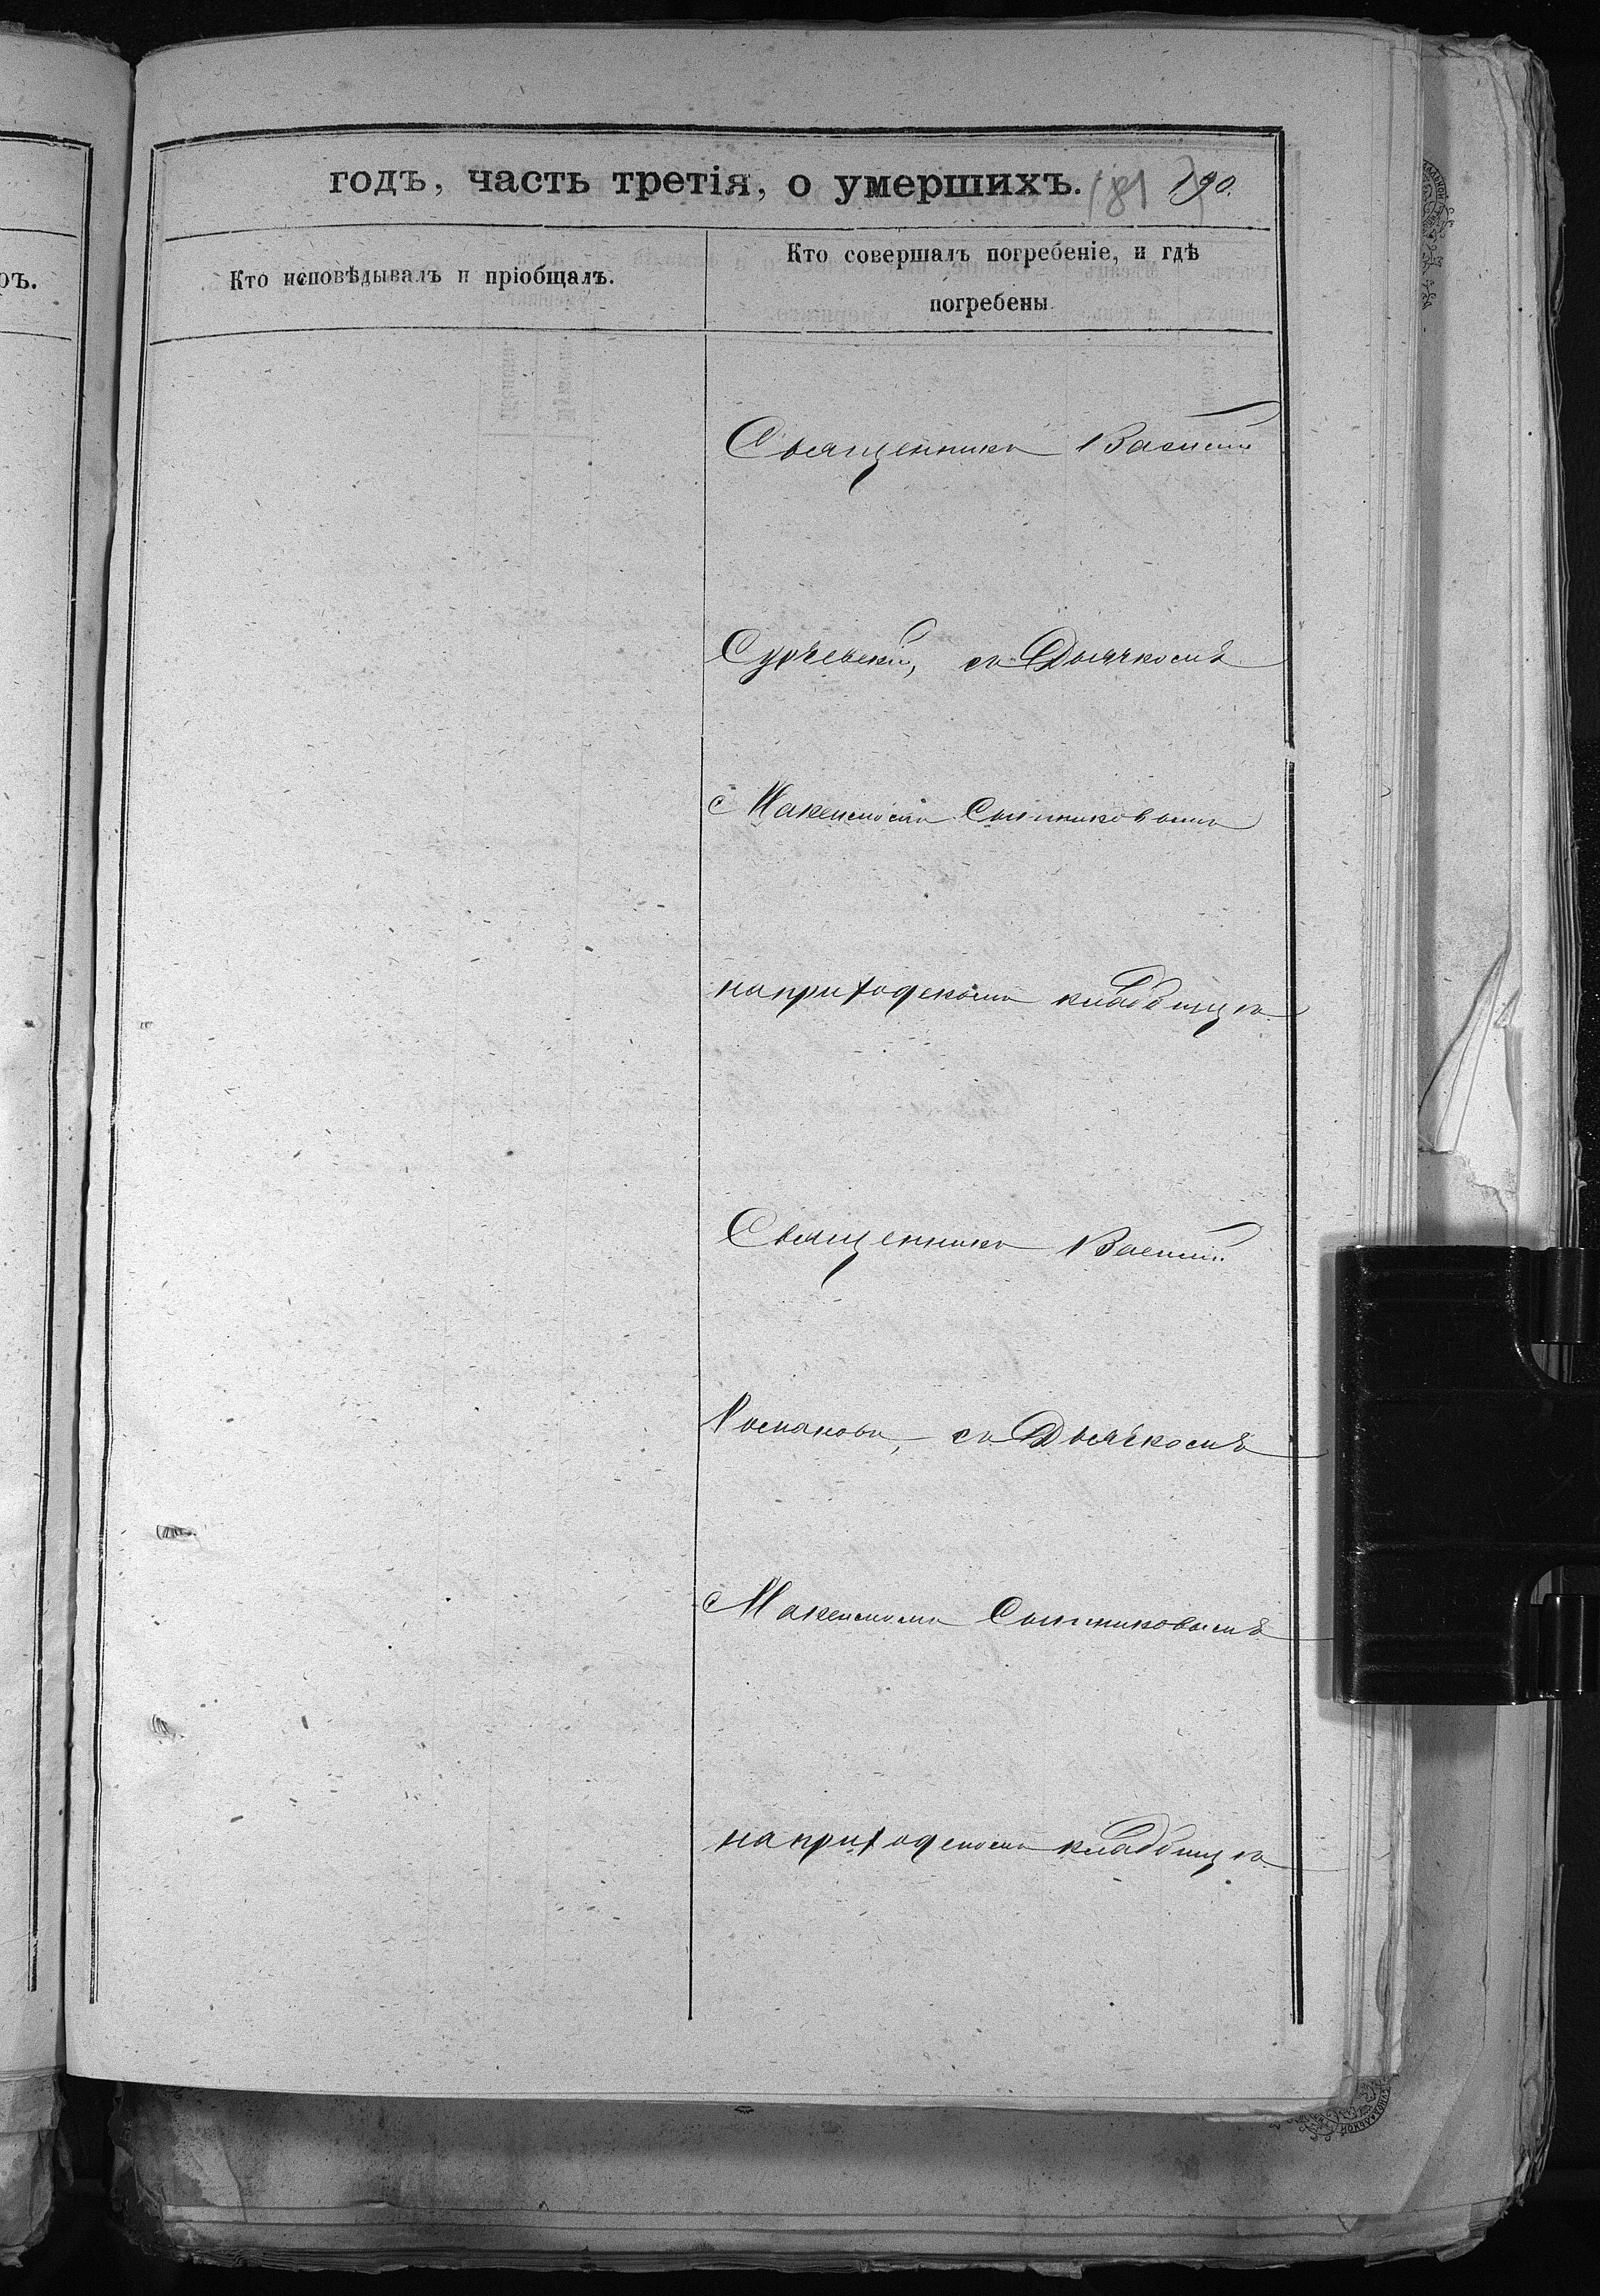 ръ.
годъ, часть третія, о умершихъ. 181 190.
Кто исповѣдывалъ и пріобщалъ.
Кто совершалъ погребеніе, и гдѣ
погребены
Священникъ Василій
съ Дьячкомъ
Максимомъ Сытниковымъ
на приходскомъ кладбищѣ
Священникъ Василій
Романовъ, съ Дьячкомъ
Максимомъ Сытниковымъ
на приходскомъ кладбищѣ